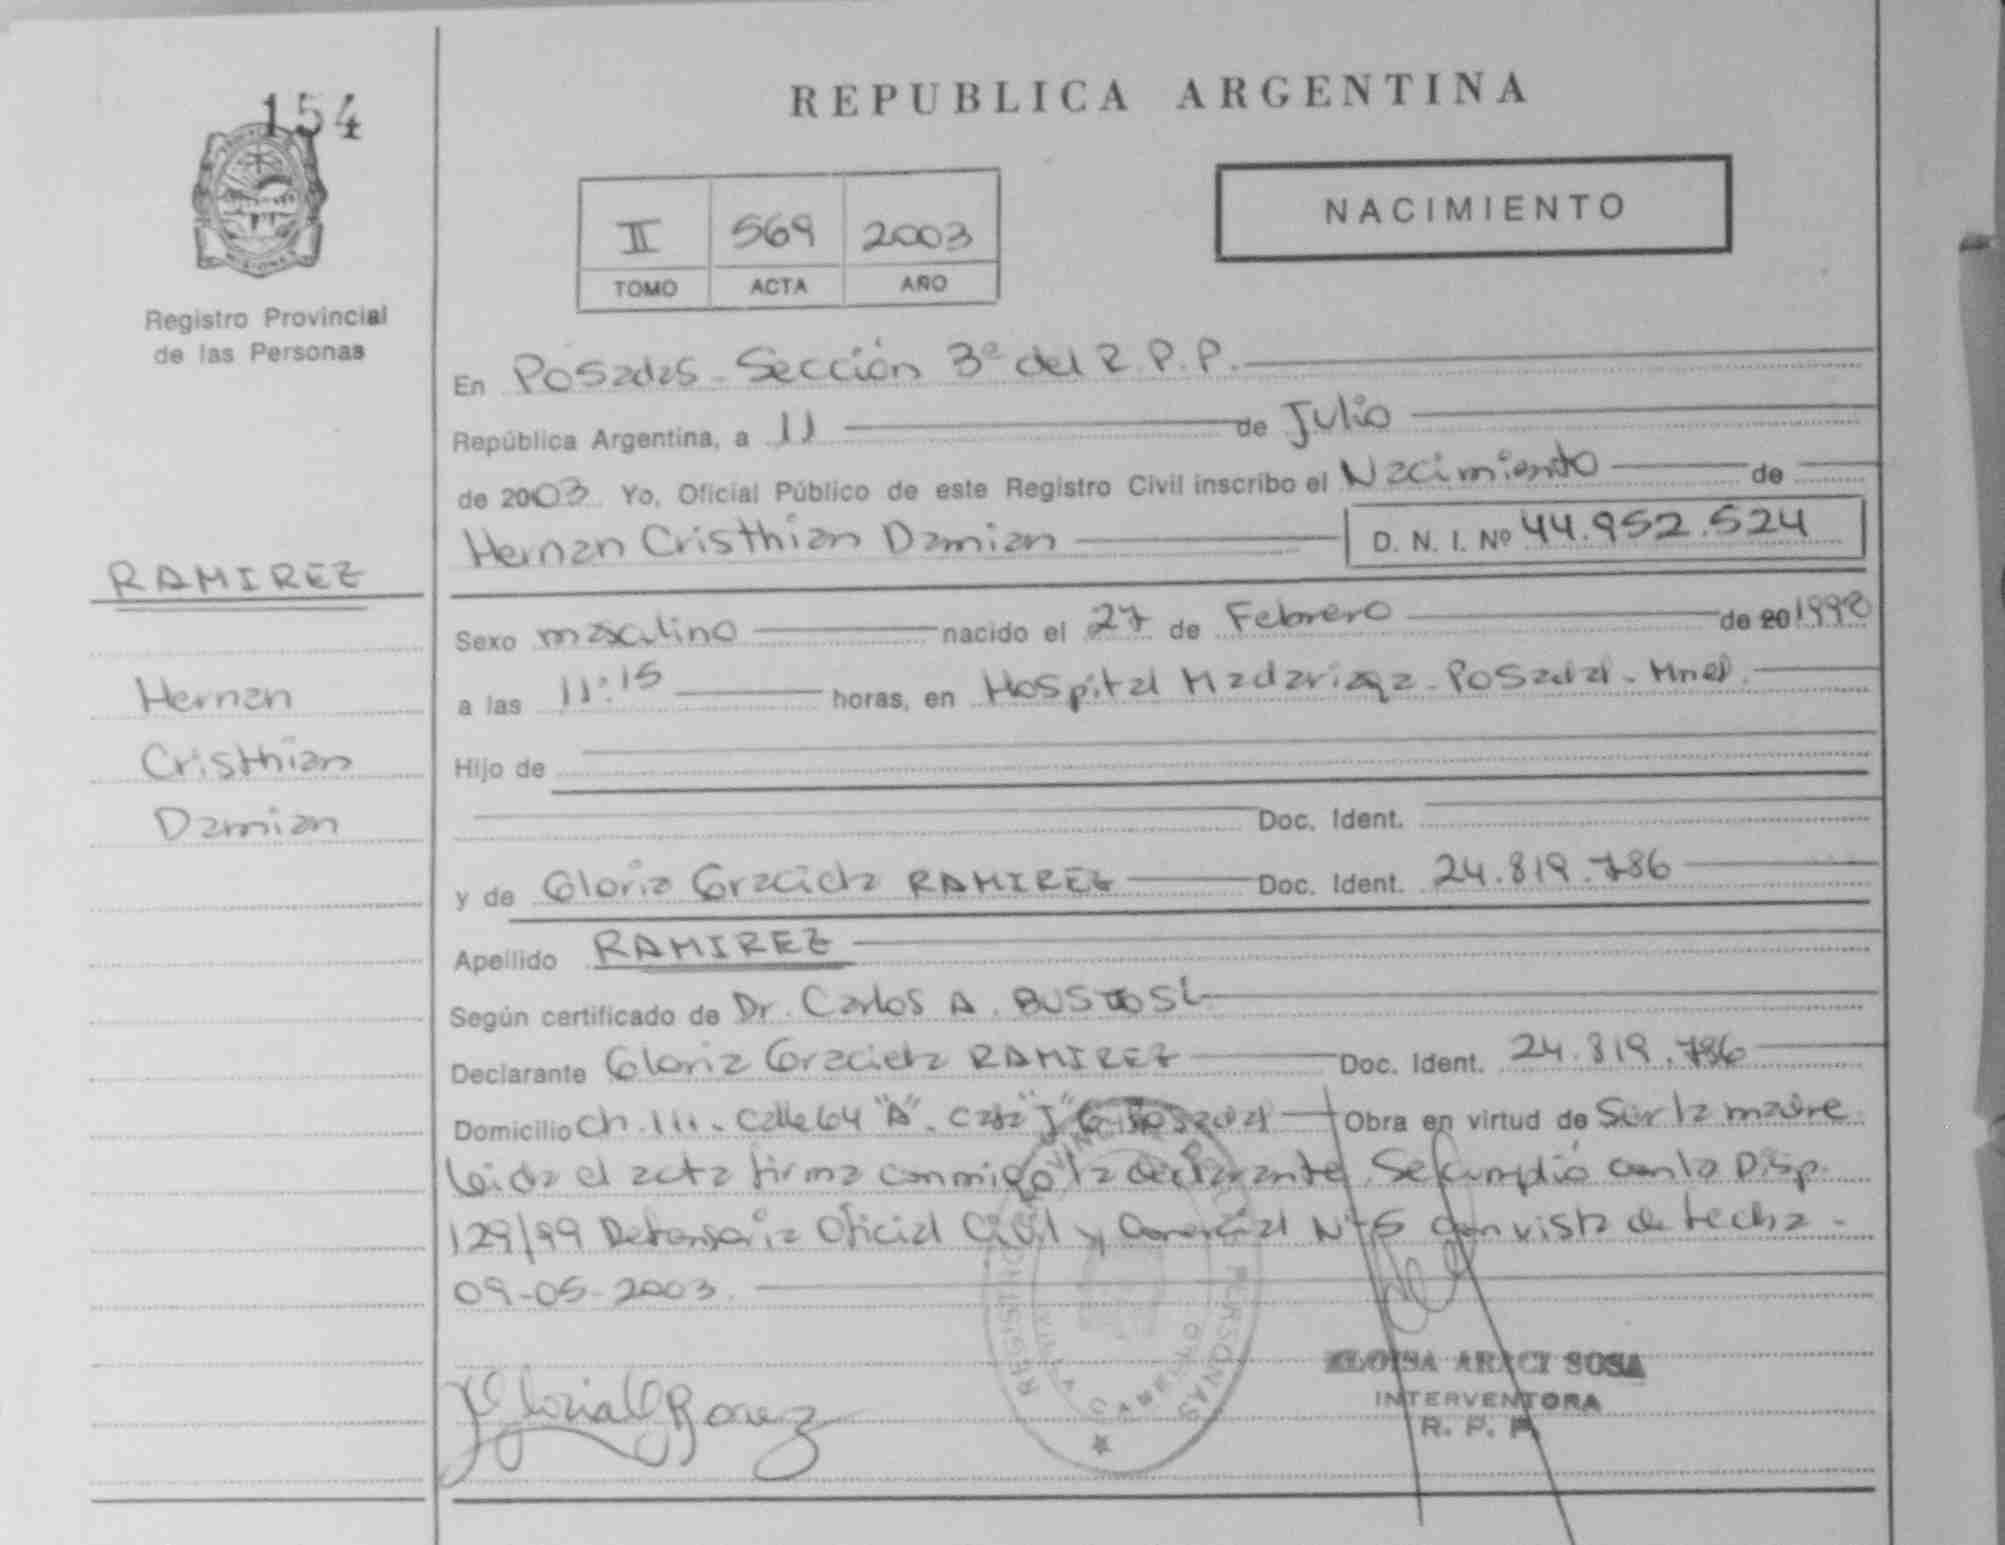 154
REPUBLICA ARGENTINA
II 569 2003
TOMO ACTA AÑO
NACIMIENTO
MISIONES
Registro Provincial
de las Personas
En Posadas - Sección 3ª del R.P.P.
República Argentina, a 11 de Julio
de 2003 Yo, Oficial Público de este Registro Civil inscribo el Nacimiento de
Hernan Cristhian Damian D. N. I. Nº 44.952.524
RAMIREZ
Sexo masculino nacido el 27 de Febrero de 20 1998
Hernan
a las 11:15 horas, en Hospital Madariaga - Posadas - Mnes.
Cristhian
Hijo de
Damian
Doc. Ident.
y de Gloria Graciela RAMIREZ Doc. Ident. 24.819.786
Apellido RAMIREZ
Según certificado de Dr. Carlos A. BUSTOS
Declarante Gloria Graciela RAMIREZ Doc. Ident. 24.819.786
Domicilio Ch. 111 - Calle 64 "A" - Casa "J" Posadas Obra en virtud de Ser la madre
leida el acta firma conmigo la declarante. Se cumplió con la Disp.
129/99 Defensoria Oficial Civil y Comercial Nº 5 con vista de fecha -
09-05-2003.
ELOISA ARACI SOSA
INTERVENTORA
R. P. P.